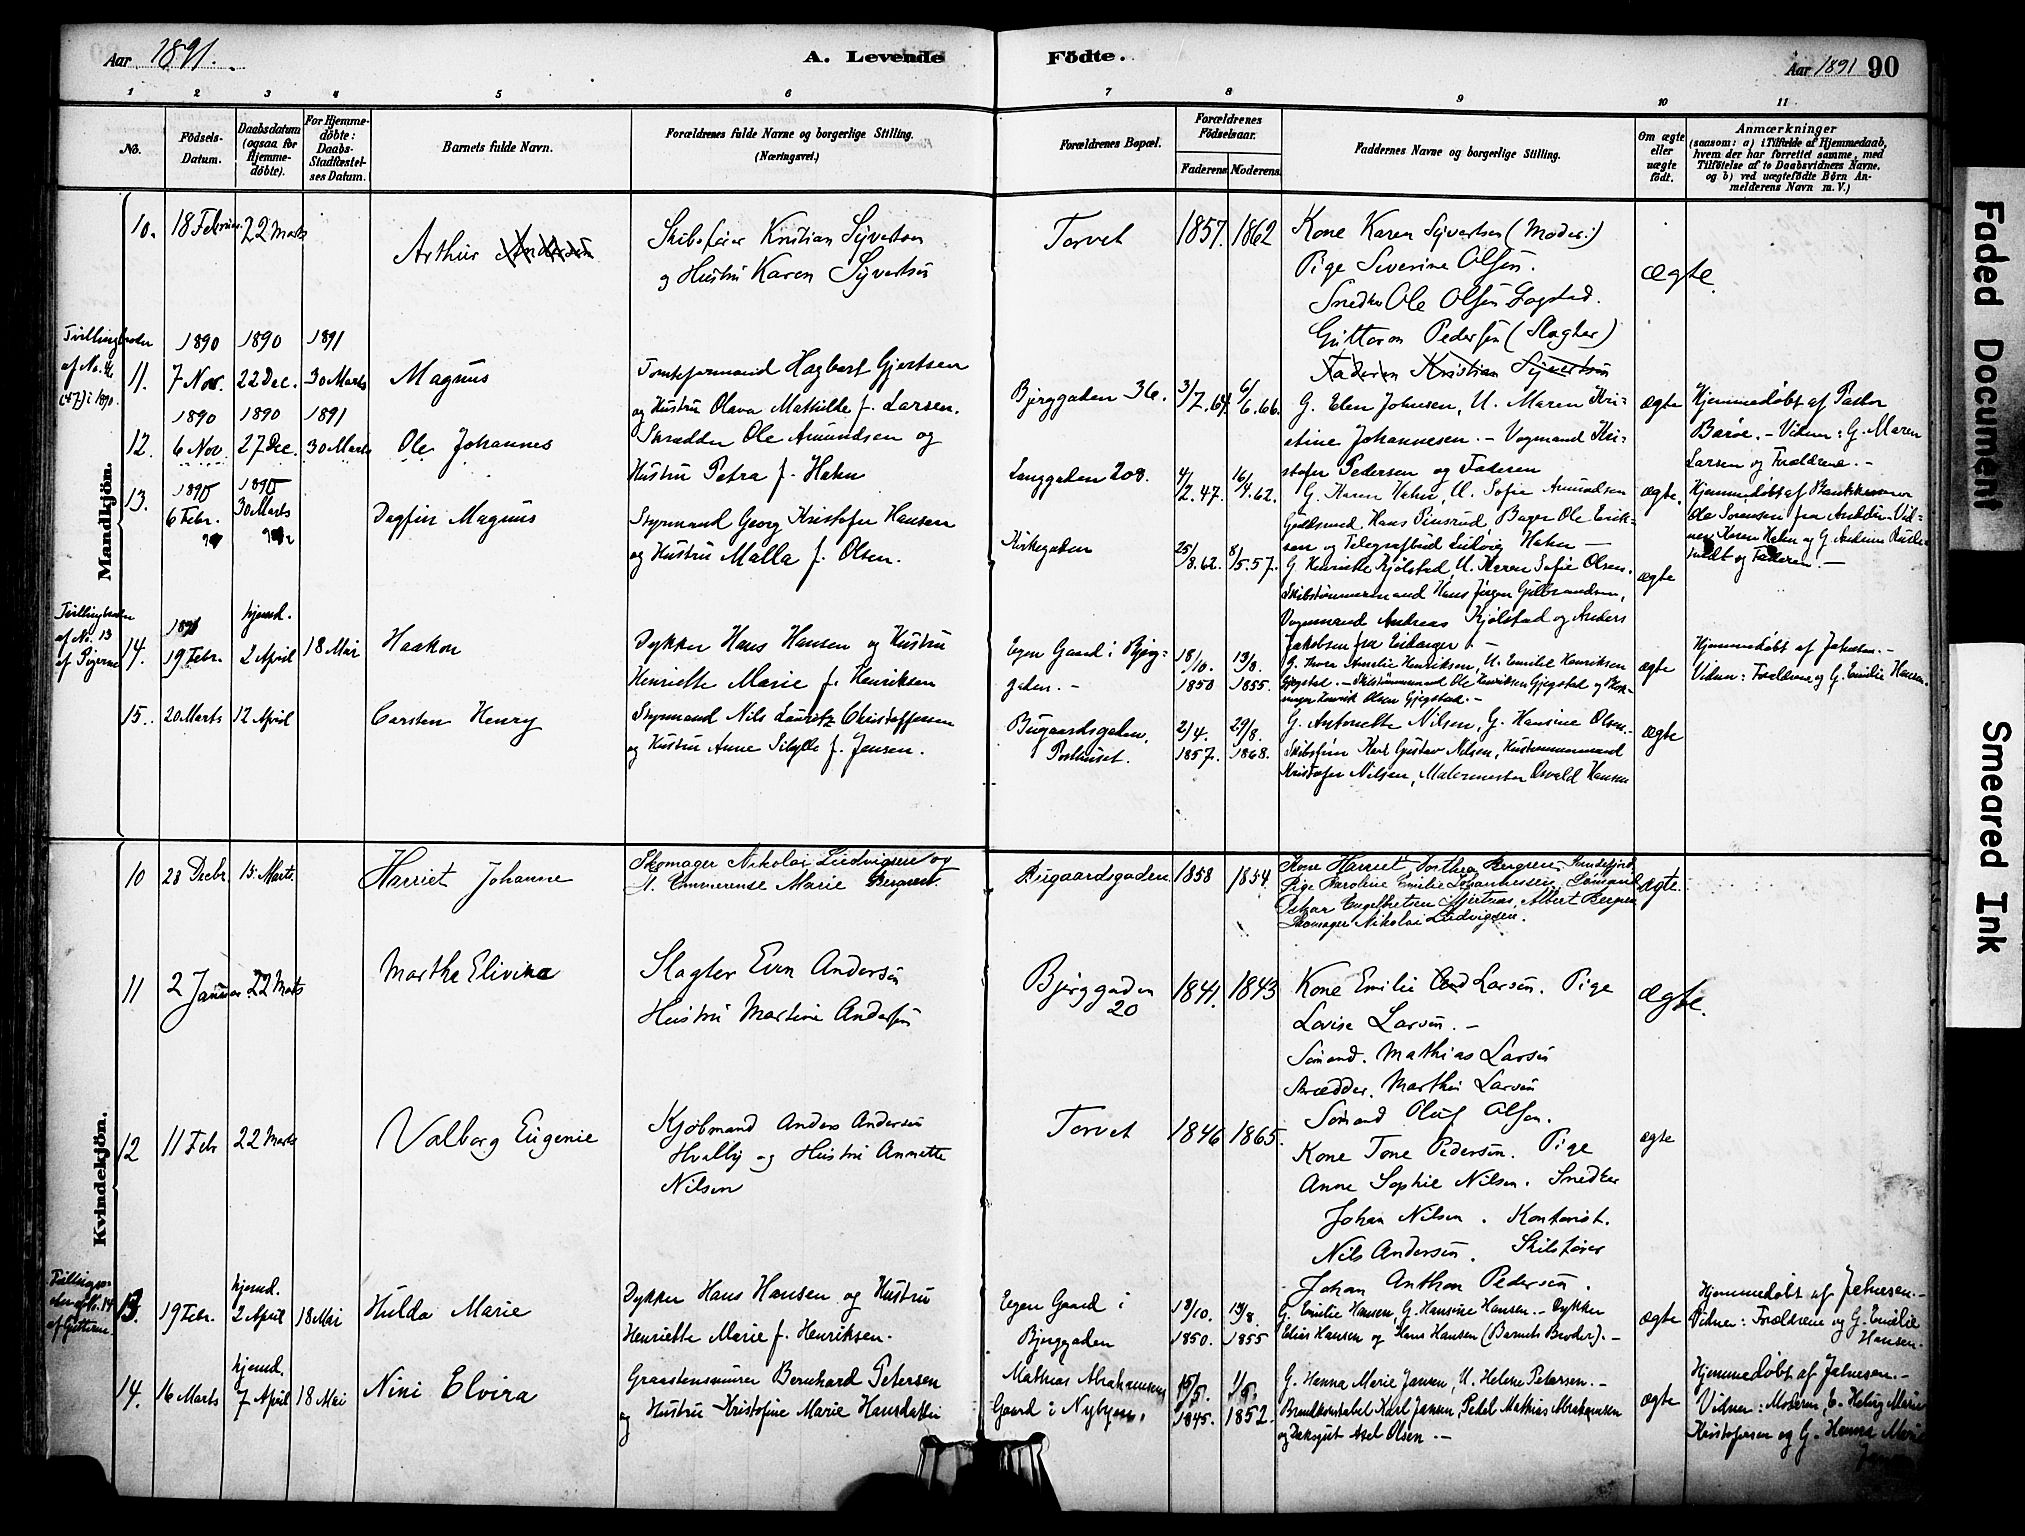 Aar 1891.
A. Levende Födte.
Aar 1891 90
1 2 3 4 5 6 7 8 9 10 11
No.
Födsels-Datum.
Daabsdatum (ogsaa for Hjemme-döbte).
For Hjemme-döbte: Daabs-Stadfæstel-ses Datum.
Barnets fulde Navn.
Forældrenes fulde Navne og borgerlige Stilling. (Næringsvei.)
Forældrenes Bopæl.
Forældrenes Födselsaar.
Faderens Moderens
Faddernes Navne og borgerlige Stilling.
Om ægte eller uægte födt.
Anmærkninger
(saasom: a) i Tilfælde af Hjemmedaab,
hvem der har forrettet samme, med
Tilföielse af to Daabsvidners Navne.
og b) ved uægtefödte Börn An-
melderens Navn m. V.)
Mandkjön.
10. 18 Februar 22 Marts
Arthur
Skibsfører Kristian Syvertsen
og Hustru Karen Syvertsen
Torvet 1857. 1862
Kone Karen Syvertsen (Moder:)
Pige Severine Olsen.
Snedker Ole Olsen Gogstad.
Guttorm Pedersen (Slagter)
Faderen Kristian Syvertsen
ægte.
Tvillingbroder
af No. 46
(47) i 1890.
1890 1890 1891
11. 7 Nov. 22 Dec. 30 Marts
Magnus
Tomteformand Hagbart Gjertsen
og Hustru Olava Mathilde f. Larsen.
Bjerggaden 36.
3/7.64. 6/6.66.
G. Elen Johnsen, U. Maren Kri-
stine Johannesen. – Vognmand Kri-
stofer Pedersen og Faderen
ægte
Hjemmedøbt af Pastor
Barøe. – Vidner: G. Maren
Larsen og Forældrene. –
1890 1890 1891
12. 6 Nov. 27 Dec. 30 Marts
Ole Johannes
Skrædder Ole Amundsen og
Hustru Petra f. Hahn
Langgaden 208.
4/2.47. 16/4.62.
G. Karen Hahn, U. Sofie Amundsen
Guldsmed Hans Pinsrud Bager Ole Erik-
sen og Telegrafbud Ludvig Hahn –
ægte.
Hjemmedøbt af
Ole Sørensen fra
Karen Hahn og G. Andrine
og Faderen. –
13. 6 Febr. 30 Marts
Dagfin Magnus
Styrmand Georg Kristofer Hansen
og Hustru Malla f. Olsen.
Kirkegaden
25/8.62. 8/5.57.
G. Henriette Kjølstad, U. Karen Sofie Olsen.
Skibstømmermand Hans Jørgen Gulbrandsen,
Vognmand Andreas Kjølstad og Anders
Jakobsen fra Eidanger –
ægte
Tvillingbroder
af No. 13
af Pigerne
1891 hjemd.
14. 19 Febr. 2 April 18 Mai
Haakon
Dykker Hans Hansen og Hustru
Henriette Marie f. Henriksen
Egen Gaard i Bjerg-
gaden. –
18/10. 1850 13/8. 1855.
G. Thora Amalie Henriksen, U. Emilie Henriksen
Gjegstad. – Skibstømmermand Ole Henriksen Gjegstad og
Henrik Olsen Gjegstad. –
ægte
Hjemmedøbt af Johnsen. –
Vidner: Forældrene og G. Emilie Hansen.
15. 20 Marts 12 April
Carsten Henry
Styrmand Nils Lauritz Christoffersen
og Hustru Anne Sibylle f. Jensen.
Bugaardsgaden.
Posthuset.
2/4. 1857. 29/8. 1868.
G. Antonette Nilsen, G. Hansine Olsen. –
Skibsfører Karl Gustav Nilsen,
Kristofer Nilsen, Malermester Osvald Hansen
ægte
Kvindekjön.
10 28 Decbr. 15 Marts
Harriet Johanne
Skomager Nikolai Ludvigsen og
H. Emmerense Marie Bergreen.
Bugaardsgaden 1858 1854
Kone Harriet Dorthea Bergreen Sandefjord
Pige Karoline Emilie Johannessen, Sømand
Oskar Engelbretsen Albert Bergreen
Skomager Nikolai Ludvigsen.
ægte.
11 2 Januar 22 Marts
Marthe Elivine
Slagter Even Andersen
Hustru Martine Andersen
Bjerggaden
20
1841. 1843
Kone Emilie Larsen. Pige
Lovise Larsen. –
Sømand. Mathias Larsen
Skrædder. Marthin Larsen
Sømand Oluf Olsen.
ægte.
12 11 Febr 22 Marts
Valborg Eugenie
Kjøbmand Anders Andersen
Hvalby og Hustru Annette
Nilsen
Torvet 1846 1865.
Kone Tone Pedersen. Pige
Anne Sophie Nilsen. Snedker
Johan Nilsen. Kontorist.
Nils Andersen. Skibsfører
Johan Anthon Pedersen.
ægte
af No. 14
af Gutterne.
hjemd.
13. 19 Febr. 2 April 18 Mai
Hulda Marie
Dykker Hans Hansen og Hustru
Henriette Marie f. Henriksen.
Egen Gaard i
Bjerggaden
18/10. 1850. 13/8. 1855
G. Emilie Hansen, G. Hansine Hansen. – Dykker
Edias Hansen og Hans Hansen (Barnets Broder). –
ægte
Hjemmedøbt af Johnsen. –
Vidner: Forældrene og G. Emilie
Hansen.
hjemd.
14. 16 Marts 7 April 18 Mai
Nini Elvira
Graastensmurer Bernhard Petersen
og Hustru Kristofine Marie Hansdatter
Mathias Abrahamsens
Gaard i Nybyen.
15/5. 1845. 1/5. 1852.
G. Hanna Marie Jansen, U. Helene Petersen. –
Brandkonstabel Karl Jansen, Pedel Mathias Abrahamsen
og Dæksgut Axel Olsen. –
ægte
Hjemmedøbt af Johnsen. –
Vidner: Moderen, E. Helvig Marie
Kristofersen og G. Hanna Marie
Jansen
Faded Document
Smeared Ink